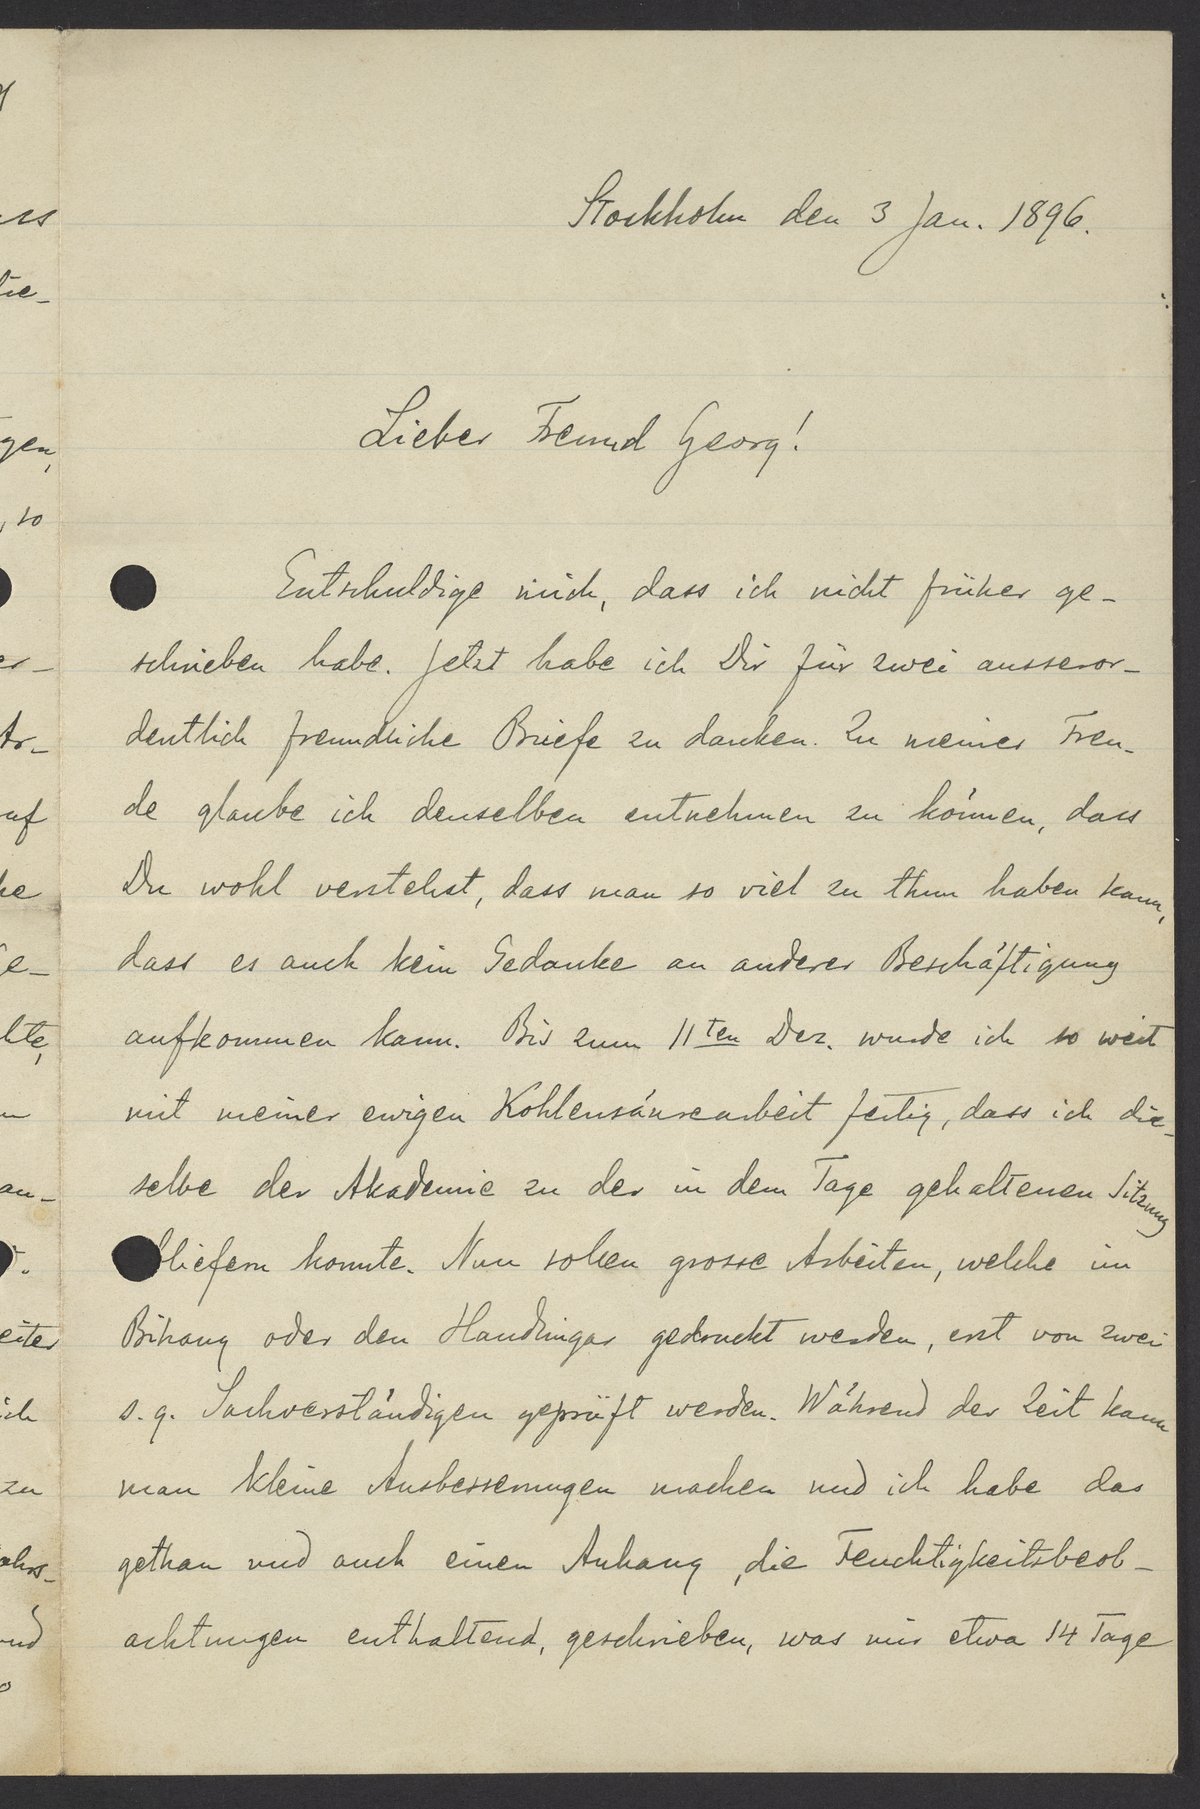 Stockholm den 3 Jan. 1896.
Lieber Freund Georg!
Entschuldige mich, dass ich nicht früher ge-
schrieben habe. Jetzt habe ich Dir für zwei ausseror-
dentlich freundliche Briefe zu danken. Zu meiner Freu-
de glaube ich denselben entnehmen zu können, dass
Du wohl verstehst, dass man so viel zu thun haben kann,
dass es auch kein Gedanke an anderer Beschäftigung
aufkommen kann. Bis zum 11ten Dez. wurde ich so weit
mit meiner ewigen Kohlensäurearbeit fertig, dass ich die-
selbe der Akademie zu der in dem Tage gehaltenen Sitzung
bliefern konnte. Nun sollen grosse Arbeiten, welche im
Bihang oder den Handlingar gedruckt werden, erst von zwei
s.g. Sachverständigen geprüft werden. Während der Zeit kann
man kleine Ausbesserungen machen und ich habe das
gethan und auch einen Anhang, die Feuchtigkeitsbeob-
achtungen enthaltend, geschrieben, was mir etwa 14 Tage